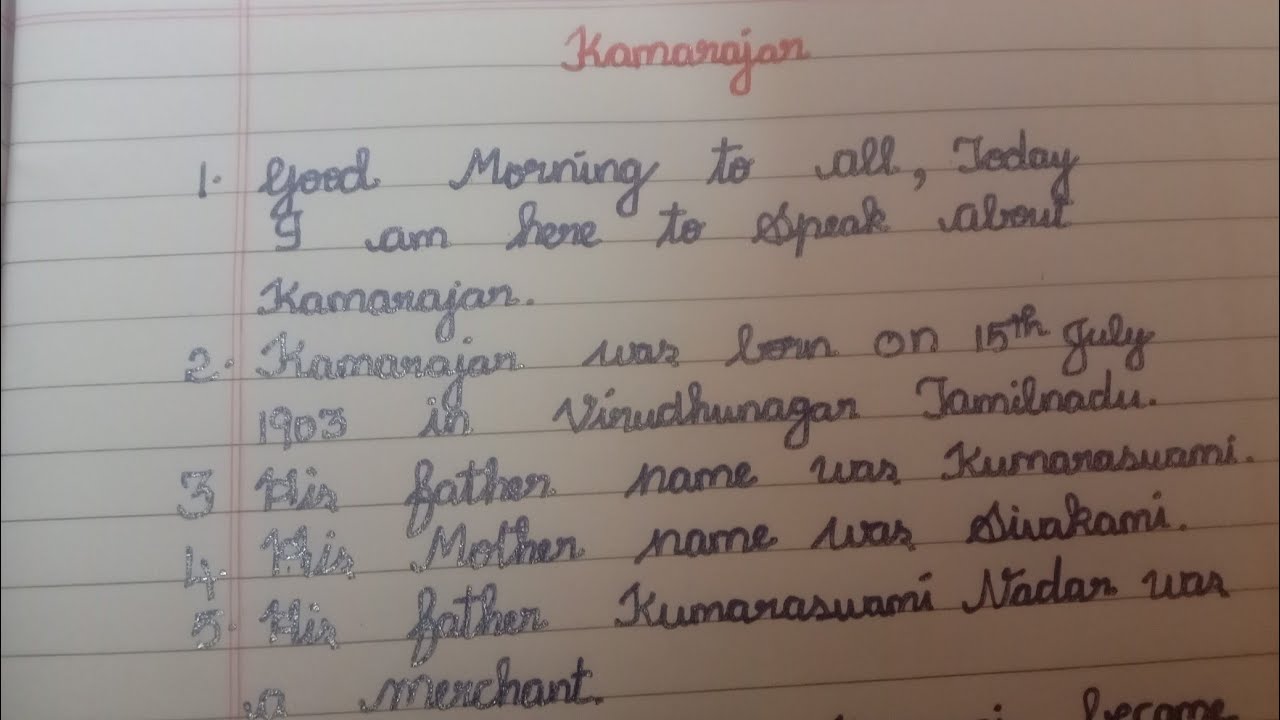 Kamarajan
1. Good Morning to all, Today
I am here to speak about
Kamarajan.
2. Kamarajan was born on 15th July
1903 in Virudhunagar Tamilnadu.
3 His father name was Kumaraswami.
4. His Mother name was Sivakami.
5. His father Kumaraswami Nadar was
a merchant.
become